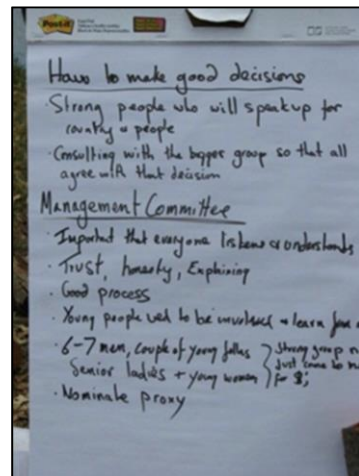 Post-it
How to make good decisions
· Strong people who will speak up for
country & people
· Consulting with the bigger group so that all
agree with that decision
Management Committee
· Important that everyone listens & understands
· Trust, honesty, Explaining
· Good process
· Young people need to be involved & learn from
· 6-7 men, couple of young fellas
Senior ladies + young women
Strong group
just come to
for $;
· Nominate proxy